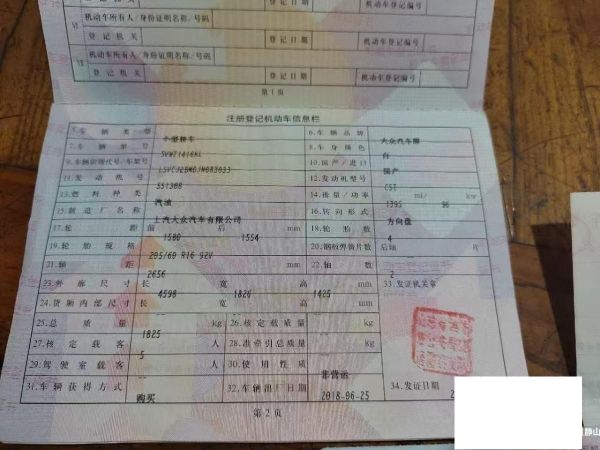 机动车所有人/身份证明名称/号码
登记机关 登记日期 机动车登记编号
机动车所有人/身份证明名称/号码
登记机关 登记日期 机动车登记编号
第1页
注册登记机动车信息栏
5.车辆类型 小型轿车 6.车辆品牌 大众汽车牌
7.车辆型号 8.车身颜色 白
9.车辆识别代号/车架号 10.国产/进口 国产
11.发动机号 12.发动机型号 CST
13.燃料种类 汽油 14.排量/功率 1395 ml/ kw
15.制造厂名称 上汽大众汽车有限公司 16.转向形式 方向盘
17.轮距 前 1580 后 1554 mm 18.轮胎数 4
19.轮胎规格 205/60 R16 92V 20.钢板弹簧片数 后轴 片
21.轴距 2656 mm 22.轴数 2
23.外廓尺寸 长 4598 宽 1826 高 1425 mm 33.发证机关章
24.货厢内部尺寸 长 宽 高 mm
25.总质量 1825 kg 26.核定载质量 kg
27.核定载客 5 人 28.准牵引总质量 kg
29.驾驶室载客 人 30.使用性质 非营运
31.车辆获得方式 购买 32.车辆出厂日期 2018-06-25 34.发证日期
第2页